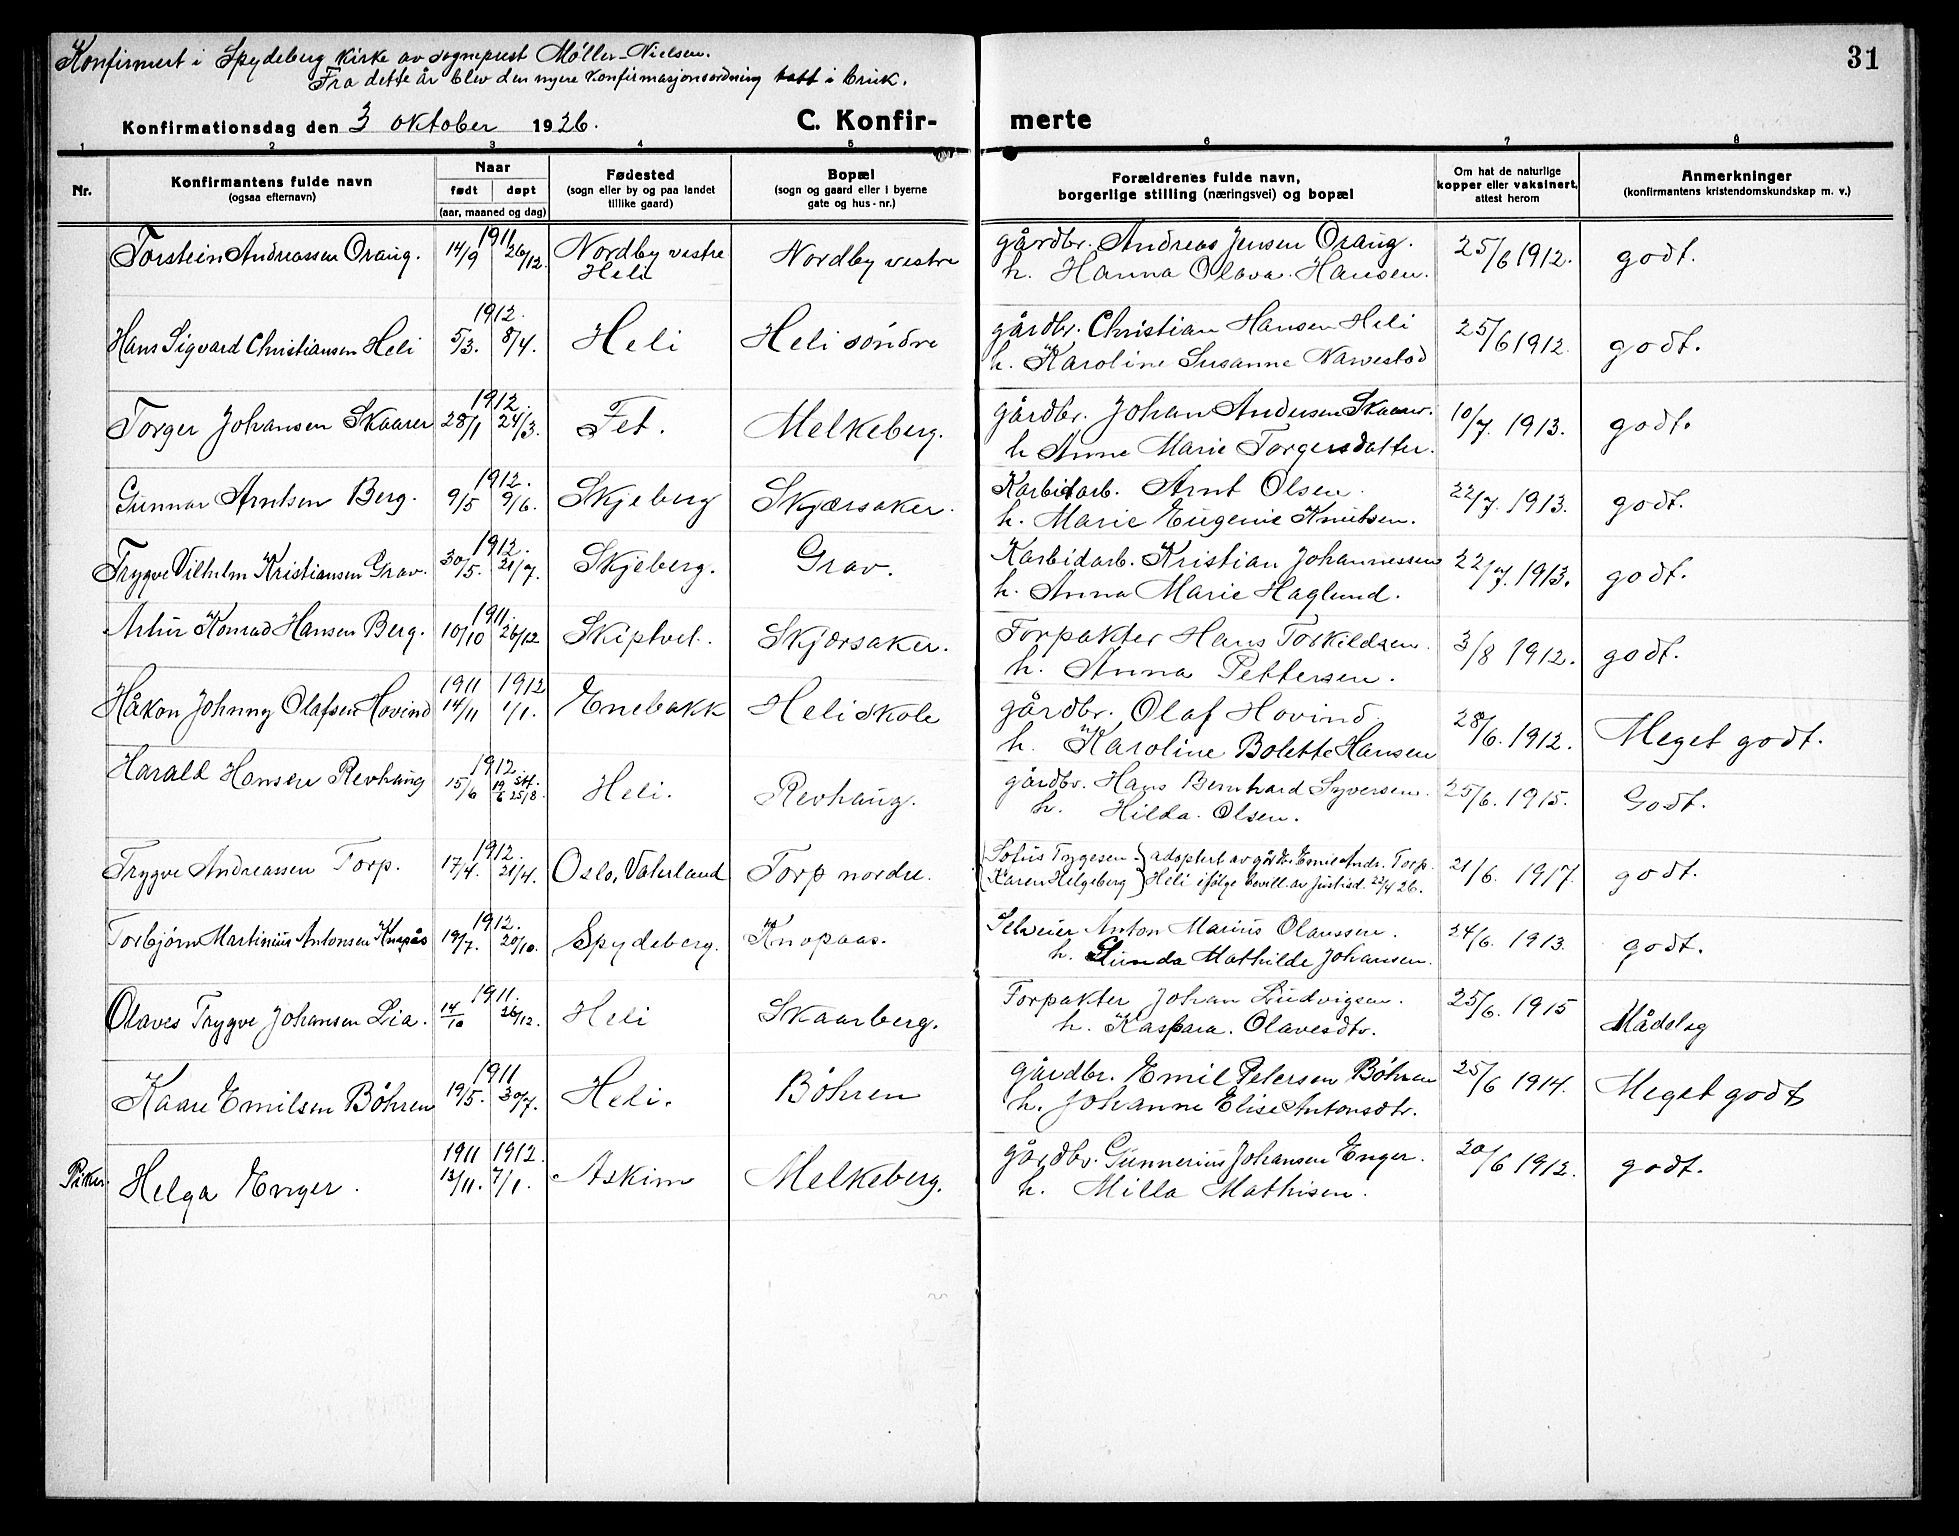 31
Konfirmert i Spydeberg Kirke av sogneprest Møller-Nielsen.
Fra dette år blev den nyere Konfirmasjonsordning tatt i bruk.
Konfirmationsdag den 3 oktober 1926.
C. Konfir- merte
1 2 3 4 5 6 7 8
Nr.
Konfirmantens fulde navn
(ogsaa efternavn)
Naar
født døpt
(aar, maaned og dag)
Fødested
(sogn eller by og paa landet
tillike gaard)
Bopæl
(sogn og gaard eller i byerne
gate og hus-nr.)
Forældrenes fulde navn,
borgerlige stilling (næringsvei) og bopæl
Om hat de naturlige
kopper eller vaksinert,
attest herom
Anmerkninger
(konfirmantens kristendomskundskap m. v.)
Torstein Andreassen Oraug. 1911 14/9 26/12. Nordby vestre Heli Nordby vestre gårdbr. Andreas Jensen Oraug. 25/6 1912. godt.
h. Hanna Olava Hansen.
Hans Sigvard Christiansen Heli 1912. 5/3. 8/4. Heli Heli søndre gårdbr. Christian Hansen Heli 25/6 1912. godt.
h. Karoline Susanne Navestad
Torger Johansen Skaarer 1912. 28/1 24/3. Fet. Melkeberg. gårdbr. Johan Andersen Skaarer. 10/7. 1913. godt.
h Anne Marie Torgersdatter.
Gunnar Arntsen Berg. 1912. 9/5 9/6. Skjeberg Skjærsaker. Karbidarb. Arnt Olsen. 22/7. 1913. godt.
h. Marie Eugenie Knutsen.
Trygve Vilhelm Kristiansen Grav. 1912. 30/5. 21/7. Skjeberg. Grav. Karbidarb. Kristian Johannessen 22/7. 1913. godt.
h. Anna Marie Haglund.
Artur Konrad Hansen Berg. 1911. 10/10 26/12 Skiptvet. Skjærsaker. Forpakter Hans Torkildsen. 3/8 1912. godt.
h. Anna Pettersen.
Håkon Johnny Olafsen Hovind 1911 14/11 1912 1/1. Enebakk Heli skole gårdbr. Olaf Hovind 28/6. 1912. Meget godt.
h. Karoline Bolette Hansen
Harald Hansen Revhaug 1912. 15/6 19/6 stf. 25/8. Heli. Revhaug. gårdbr. Hans Bernhard Syversen. 25/6. 1915. Godt.
h. Hilda Olsen.
Trygve Andreassen Torp. 1912. 17/4. 21/4. Oslo, Vaterland Torp nordre. Sofus Trygesen adoptert av gårdbr. Emil Andr. Torp. 21/6. 1917. godt.
Karen Helgeberg Heli ifølge bevill. av Justisd. 22/4 26.
Torbjørn Martinius Antonsen Knapås 1912. 19/7. 20/10. Spydeberg. Knapaas. Selveier Anton Marius Olaussen. 24/6. 1913. godt.
h. Gunda Mathilde Johansen.
Olaves Trygve Johansen Lia. 1911. 14/10 26/12. Heli Skaarberg. Forpakter Johan Ludvigsen. 25/6. 1915 Mådelig
h. Kaspara Olavesdtr.
Kaare Emilsen Bøhren 1911 19/5. 30/7. Heli. Bøhren gårdbr. Emil Petersen Bøhren 25/6 1914. Meget godt
h. Johanne Elise Antonsdtr.
Piker. Helga Enger. 1911 13/11. 1912. 7/1. Askim Melkeberg. gårdbr. Gunnerius Johansen Enger. 20/6 1912. godt.
h. Milla Mathisen.